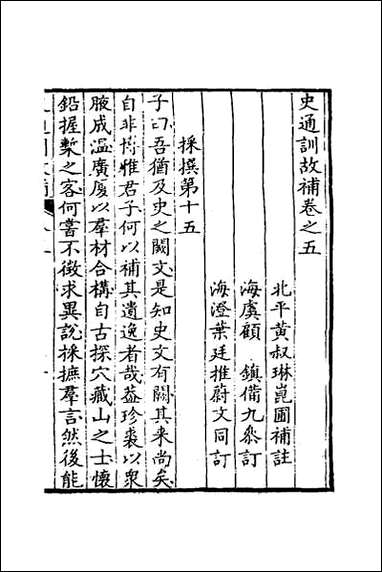 史通訓故補卷之五
北平黃叔琳崑圃補註
海虞顧　鎮備九叅訂
海澄葉廷推蔚文同訂
採撰第十五
子曰吾猶及史之闕文是知史文有闕其来尚矣
自非博雅君子何以補其遺逸者哉盖珍裘以衆
腋成温廣厦以羣材合構自古探穴藏山之士懷
鉛握槧之客何嘗不徵求異說採摭羣言然後能